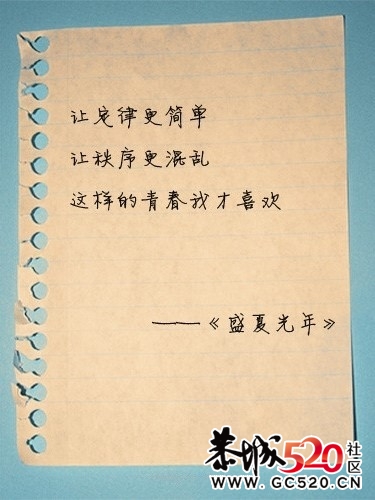 让定律更简单
让秩序更混乱
这样的青春我才喜欢
——《盛夏光年》
恭城520社区
WWW.GC520.CN